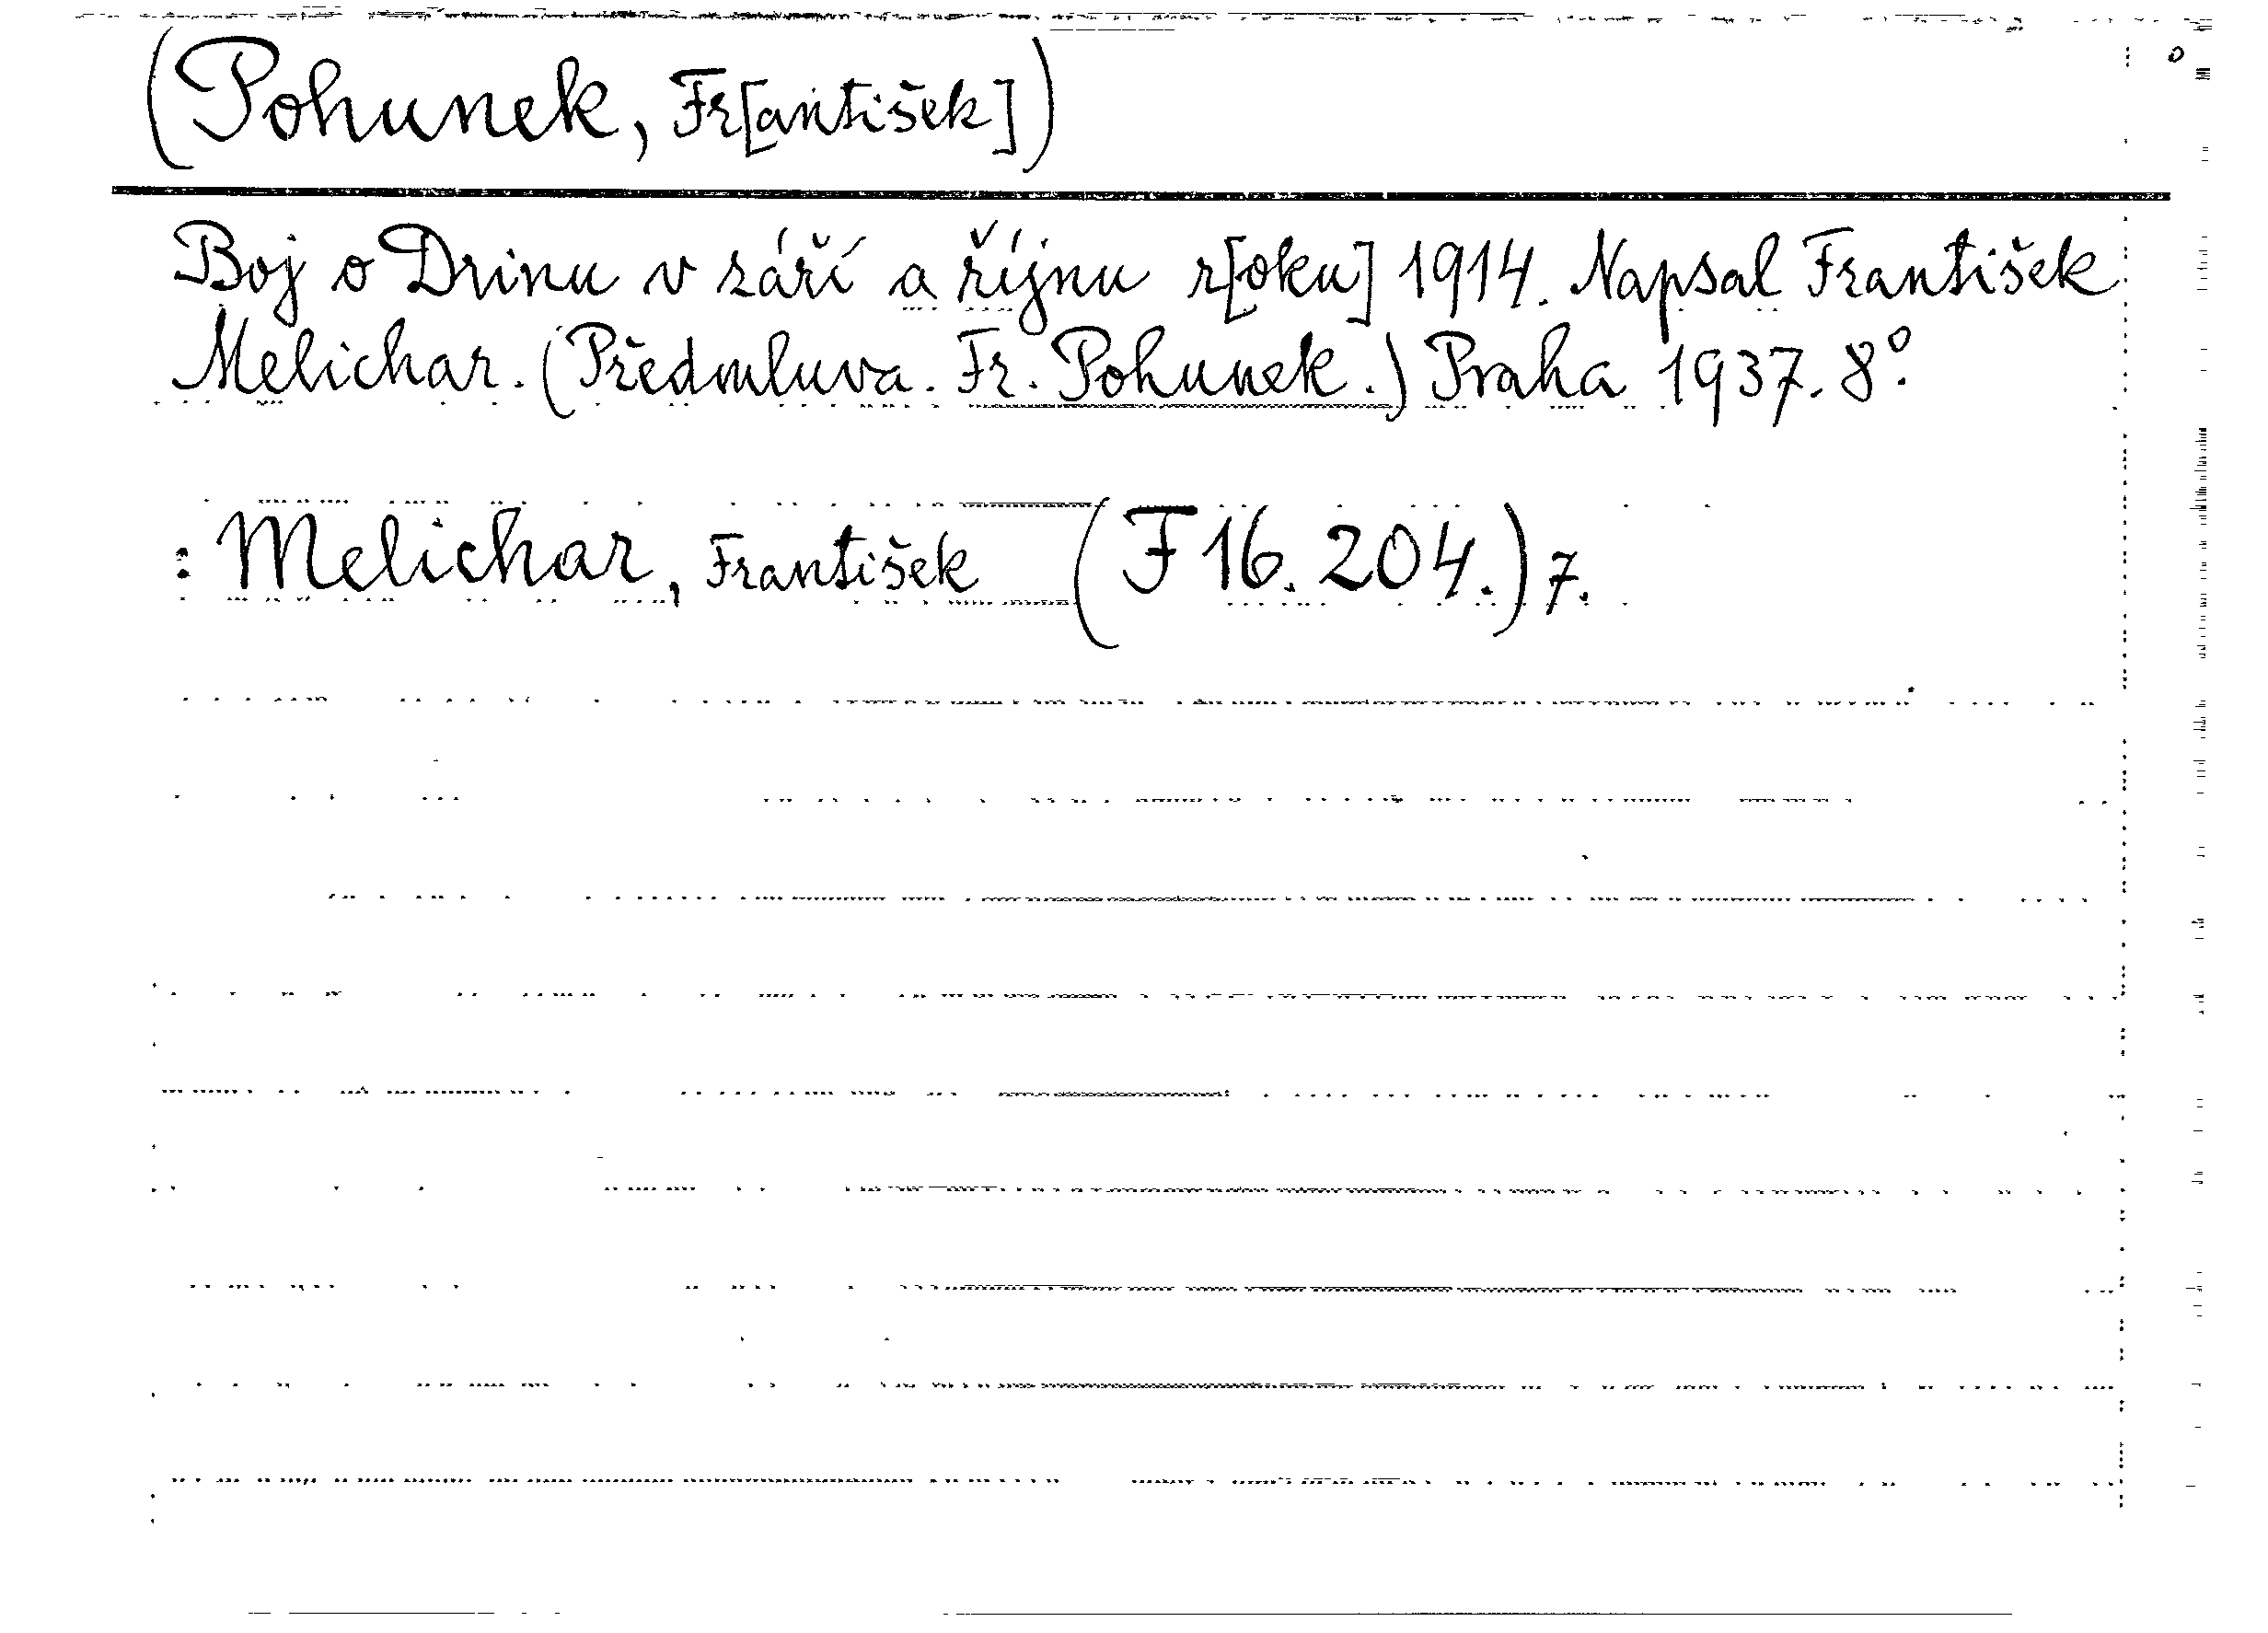 (Pohunek, Fr[antišek])
Boj o Drinu v září a říjnu r[oku] 1914. Napsal František
Melichar. (Předmluva. Fr. Pohunek.) Praha 1937. 8°.
: Melichar, František (F 16. 204.) 7.